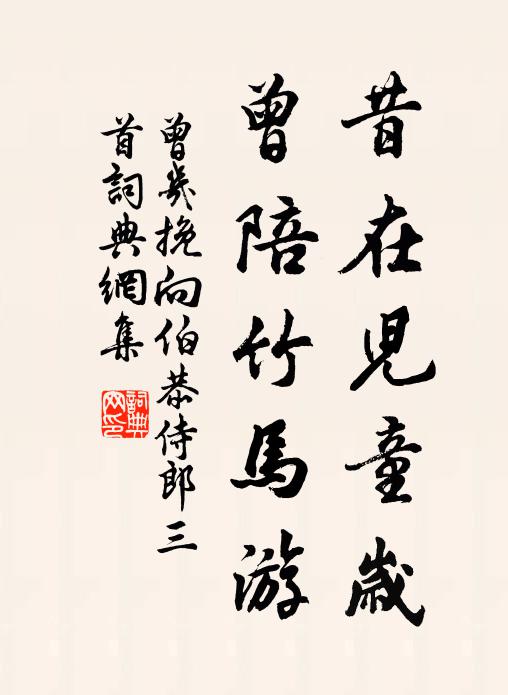 昔在兒童歲
曾陪竹馬游
曾幾挽向伯恭侍郎三
首詞典網集
詞典网印